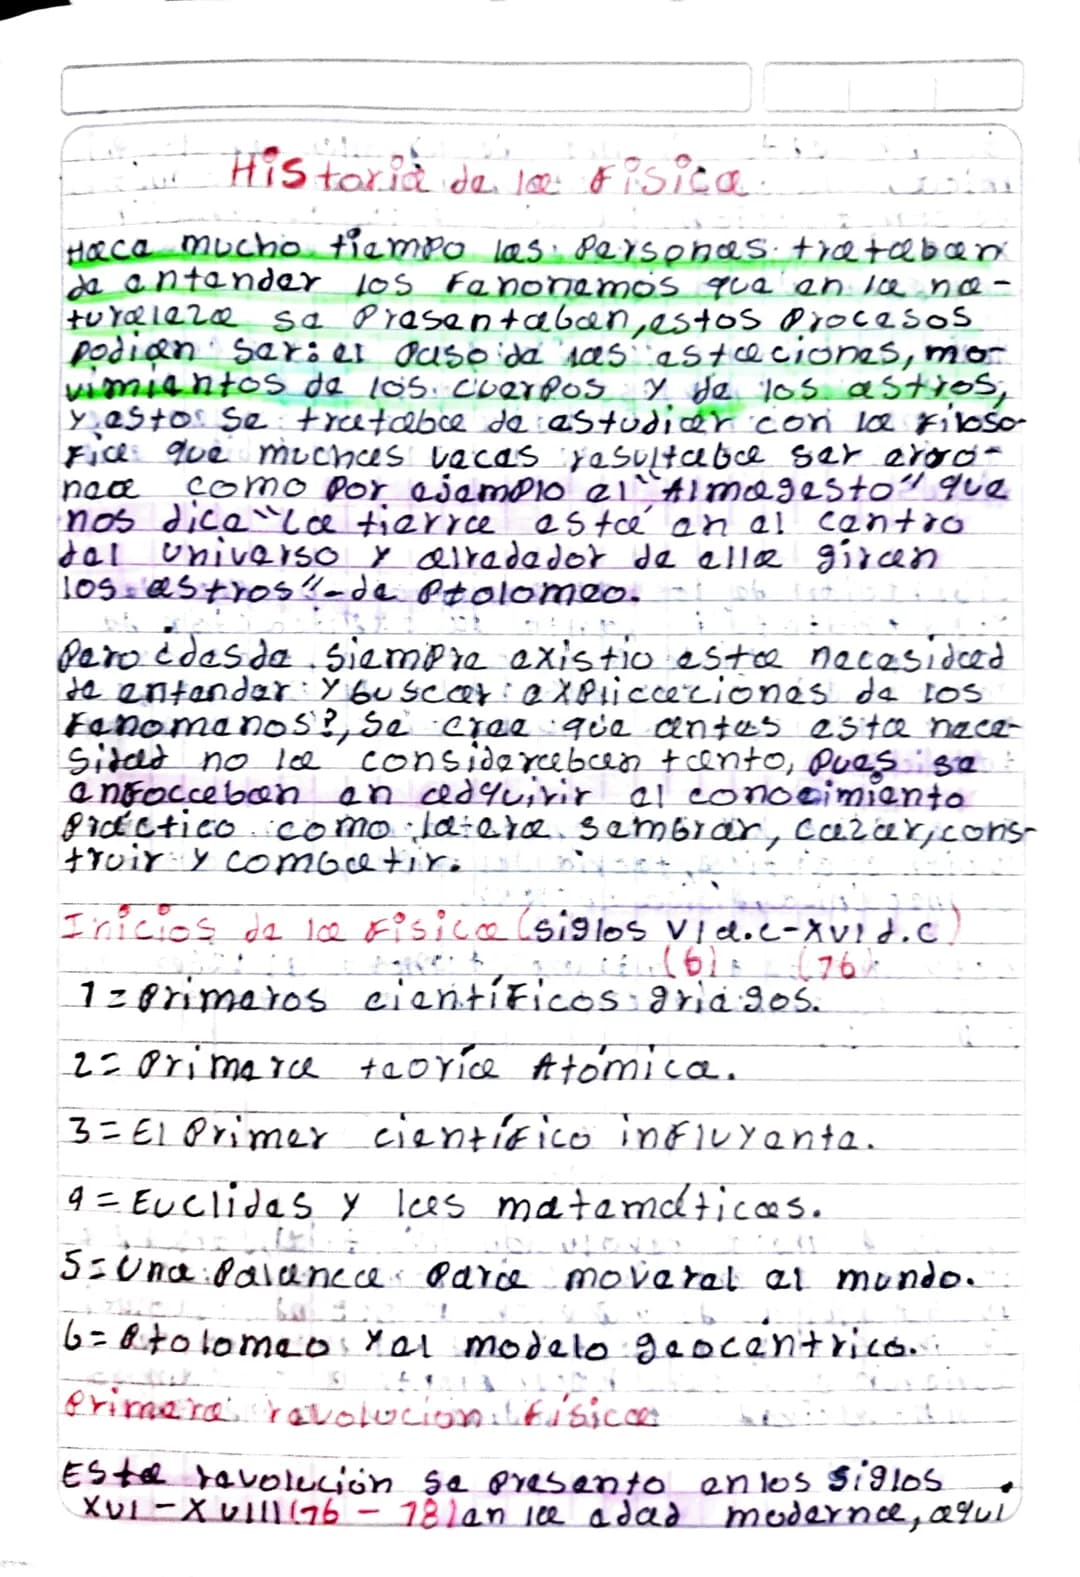 Historia de la Física
Hace mucho tiempo las Personas trataban
de entender los Fenonemos que en la na-
turaleza se Presentaban, estos Procesos
Podian ser: el Paso de las estaciones, mo-
vimientos de los cuerpos y de los astros,
y esto se trataba de estudiar con la Filoso-
Fia que muchas veces resultaba ser erró-
nea como Por ejemplo el "Almagesto" que
nos dice "La tierra está en el centro
del universo y alrededor de ella giran
los astros"-de Ptolomeo.
Pero ¿desde siempre existio esta necesidad
de entender y buscar explicaciones de los
Fenomenos?, Se cree que antes esta nece-
sidad no la consideraban tanto, Pues se
enfocaban en adquirir el conocimiento
Práctico como lo era sembrar, cazar, cons-
truir y combatir.
Inicios de la Física (siglos VI a.c-XVI d.c)
(6) (76)
1= Primeros científicos griegos.
2= Primera teoría Atómica.
3= El Primer científico influyente.
4= Euclides y las matemáticas.
5= Una Palanca Para moveral el mundo.
6= Ptolomeo y el modelo geocéntrico.
Primera revolucion física
Esta revolución se Presento en los siglos
XVI-XVIII(76 - 78) en la edad moderna, aquí